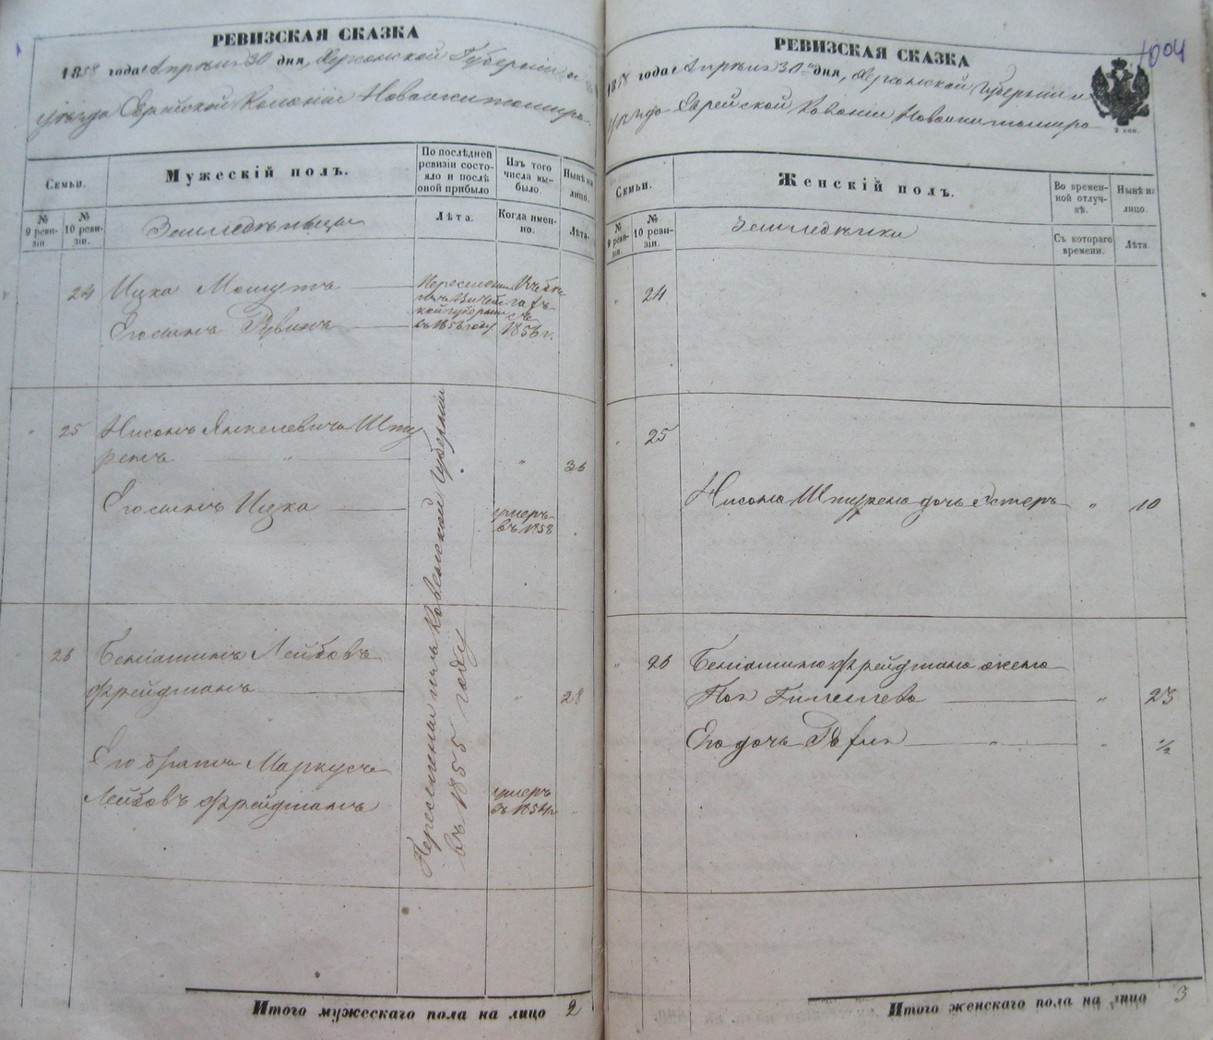 РЕВИЗСКАЯ СКАЗКА
1858 года Апреля 30 дня, Херсонской Губернии и
уезда Еврейской Колонии Новаяжитомира
Семьи.
Мужескій полъ.
По послѣдней ревизіи состояло и послѣ оной прибыло
Изъ того числа выбыло.
Нынѣ на лицо.
№ 9 ревизіи.
№ 10 ревизіи.
Земледѣльцы
Лѣта.
Когда именно.
Лѣта.
24 Ицка
Егосынъ Рувинъ
въ 1856 году
1856 г.
25 Нисонъ Янкелевичъ Шпу
ренъ 36
Егосынъ Ицка
умеръ
въ 1858
26 Беніаминъ Лейбовъ
Фрейдманъ 28
Его братъ Маркусъ
Лейбовъ Фрейдманъ
умеръ
Переселились Ковенской Губерніи
въ 1855 году
Итого мужескаго пола на лицо 2
1004
РЕВИЗСКАЯ СКАЗКА
1858 года Апреля 30 дня, Херсонской Губерніи и
уезда Еврейской Колоніи Новаяжитомира
2 коп.
Семьи.
Женскій полъ.
Во временной отлучкѣ.
Нынѣ на лицо.
№ 9 ревизіи.
№ 10 ревизіи.
Съ котораго времени.
Лѣта.
24
25
Нисона Шпурена дочь Эстеръ " 10
26 Беніамина Фрейдмана жена
" 23
Его дочь " 1/2
Итого женскаго пола на лицо 3